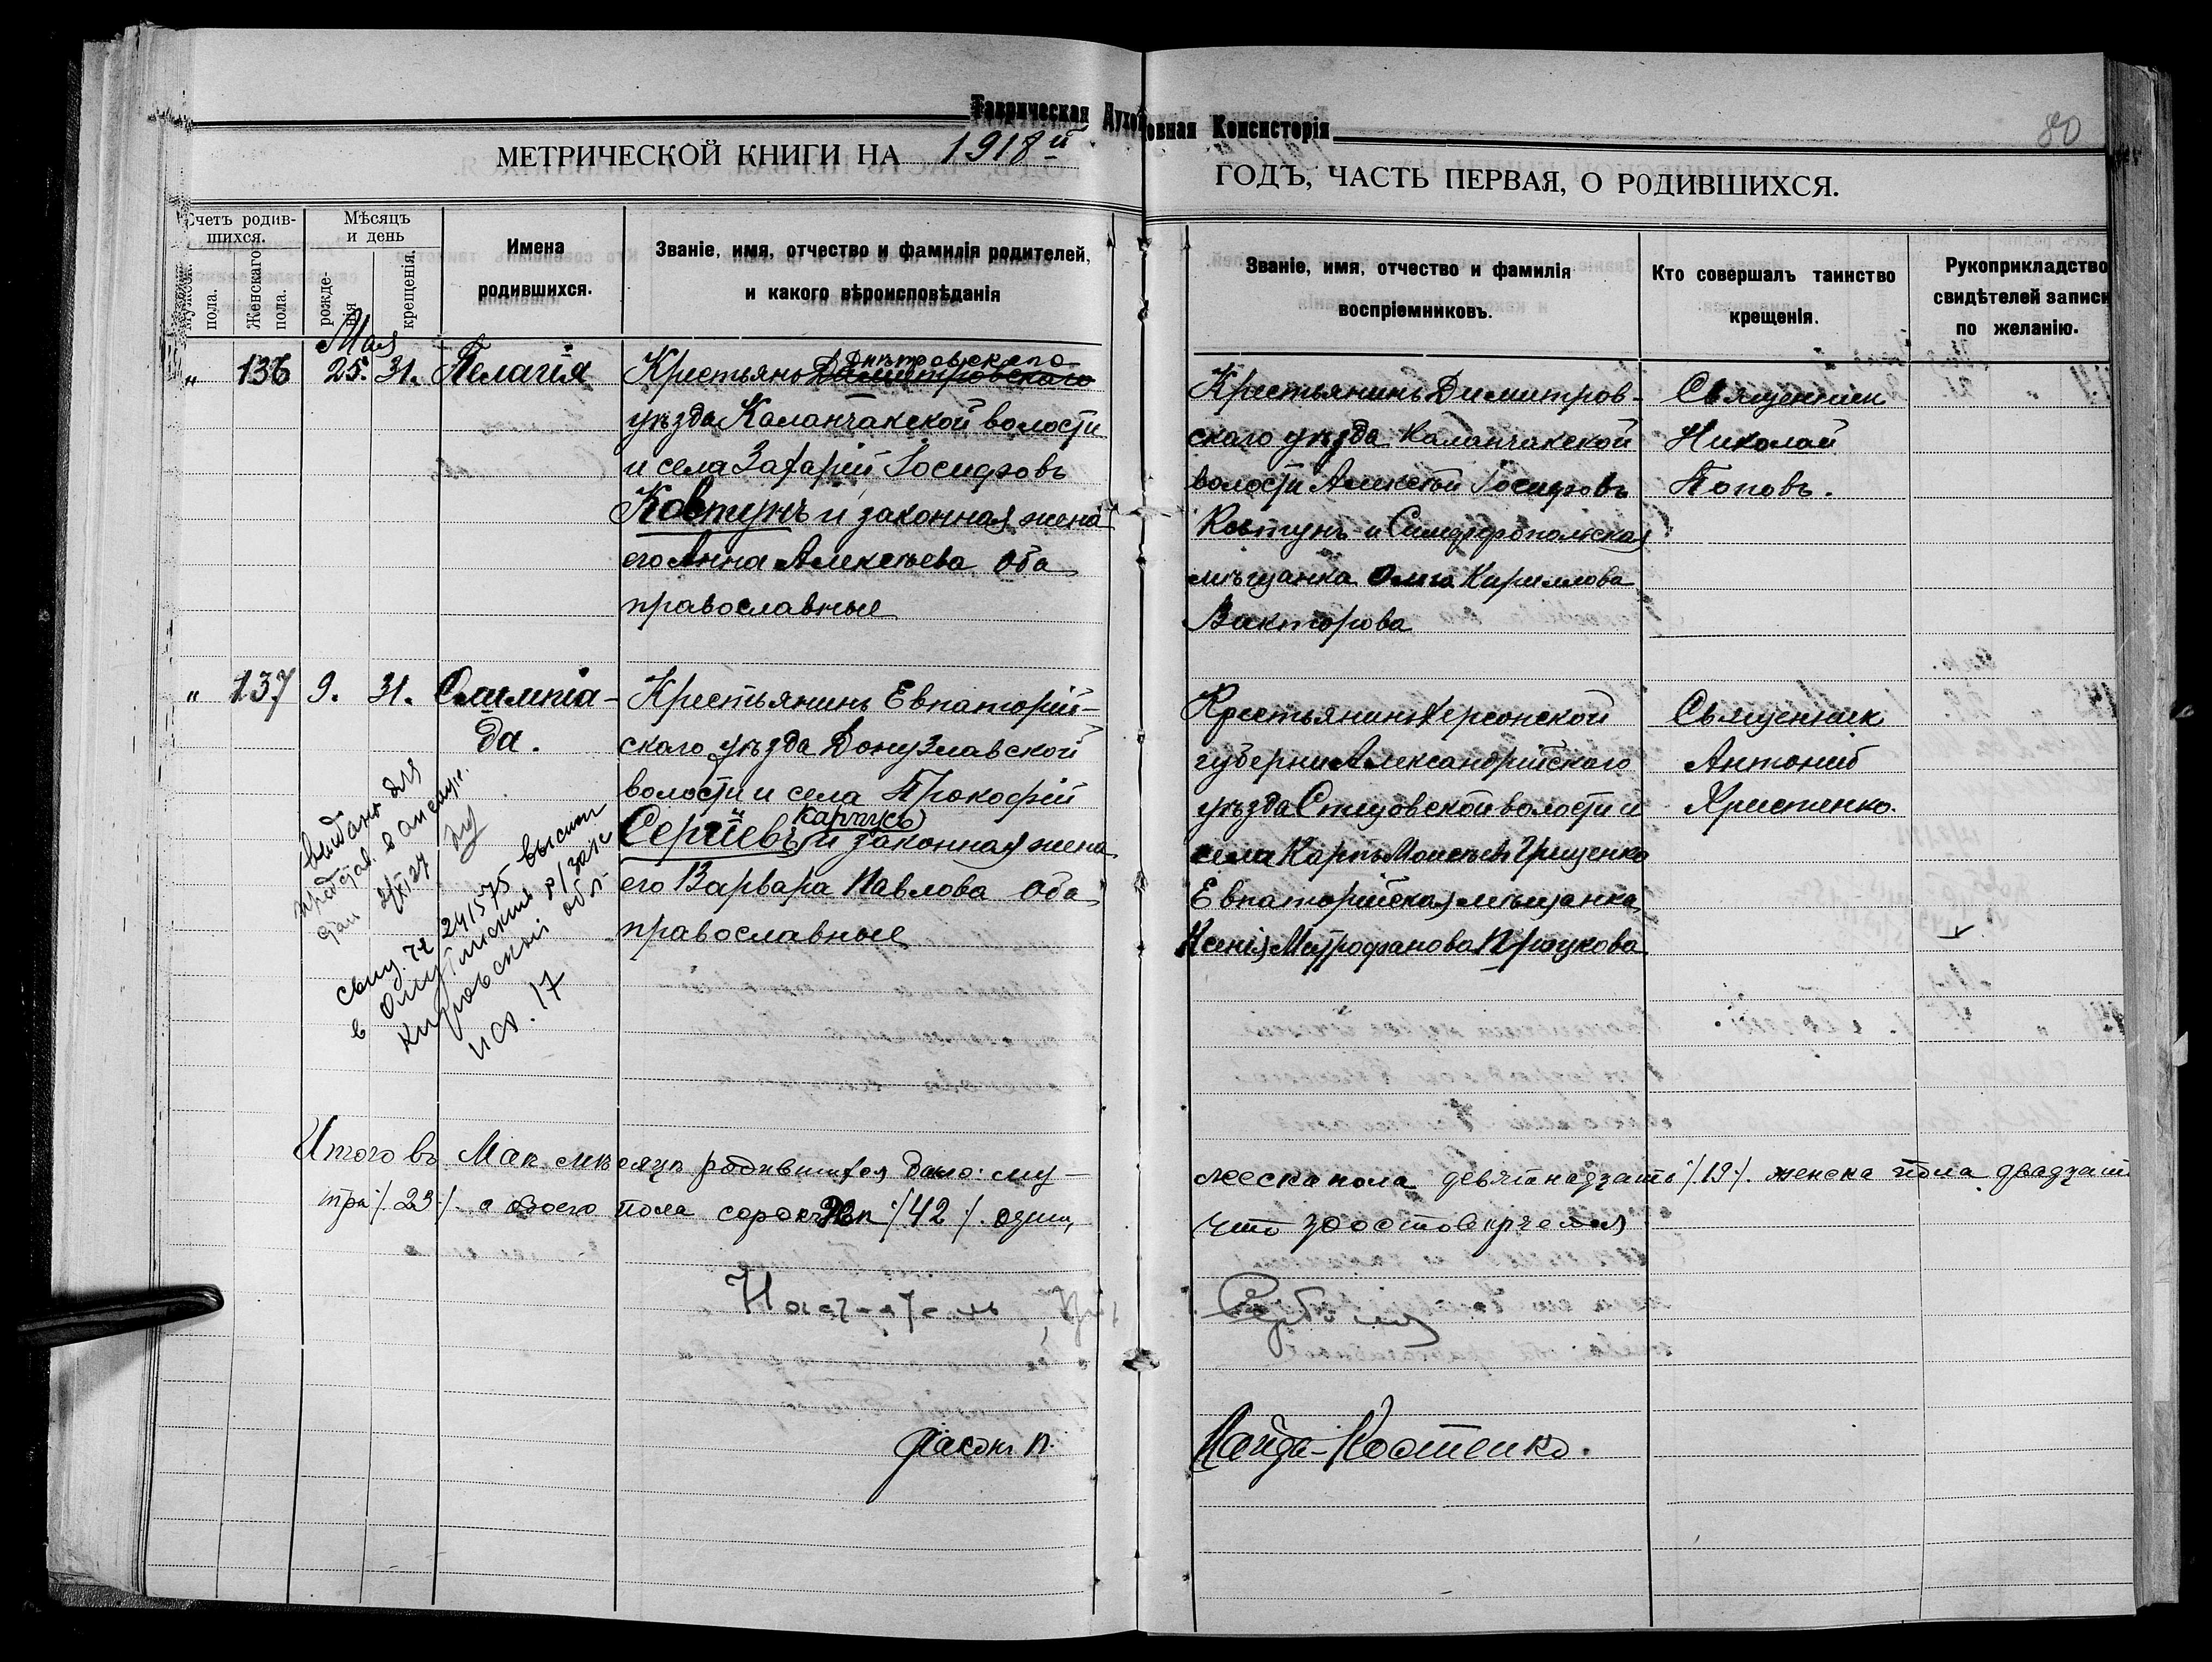 Таврическая Духовная Консисторія
80
МЕТРИЧЕСКОЙ КНИГИ НА 1918й
ГОДЪ, ЧАСТЬ ПЕРВАЯ, О РОДИВШИХСЯ.
Счетъ родив-
шихся.
пола.
Женскаго
пола.
Мѣсяцъ
и день
рожде-
нія
крещенія.
Имена
родившихся.
Званіе, имя, отчество и фамилія родителей,
и какого вѣроисповѣданія
Званіе, имя, отчество и фамилія
воспріемниковъ.
Кто совершалъ таинство
крещенія.
Рукоприкладство
свидѣтелей записи
по желанію.
Мая
" 136 25. 31. Пелагія
Днѣпровскаго
Крестьянъ Димитровскаго
уѣзда Каланчакской волости
и села Захарій Іосифовъ
Ковтунъ и законная жена
его Анна Алексѣева оба
православные
Крестьянинъ Димитров-
скаго уѣзда Каланчакской
волости Алексѣй Іосифовъ
Ковтунъ и Симферопольская
мѣщанка Ольга Кириллова
Викторова
Священник
Николай
Поповъ.
" 137 9. 31. Олимпіа-
да.
Крестьянинъ Евпаторій-
скаго уѣзда Донузлавской
волости и села Прокофій
Карпусь
Сергіевъ и законная жена
его Варвара Павлова оба
православные
Крестьянинъ Херсонской
губерни Александрійского
уѣзда волости и
села Карпъ Моисѣевъ Грищенко
Евпаторійская мѣщанка
Ксенія Митрофанова
Священник
Антоній
Христенко.
выдано для
24/XI 27
свид. 72 241575 высит
в Омутнинский р/загс
Кировский обл.
исх. 17
Итого въ Мае мѣсяцѣ родившихся было: му-
жеска пола девятнадцать /19/. женска пола двадцат
три /23/. а обоего пола сорокъ два /42/.
что удостовѣряемъ
Настоятель